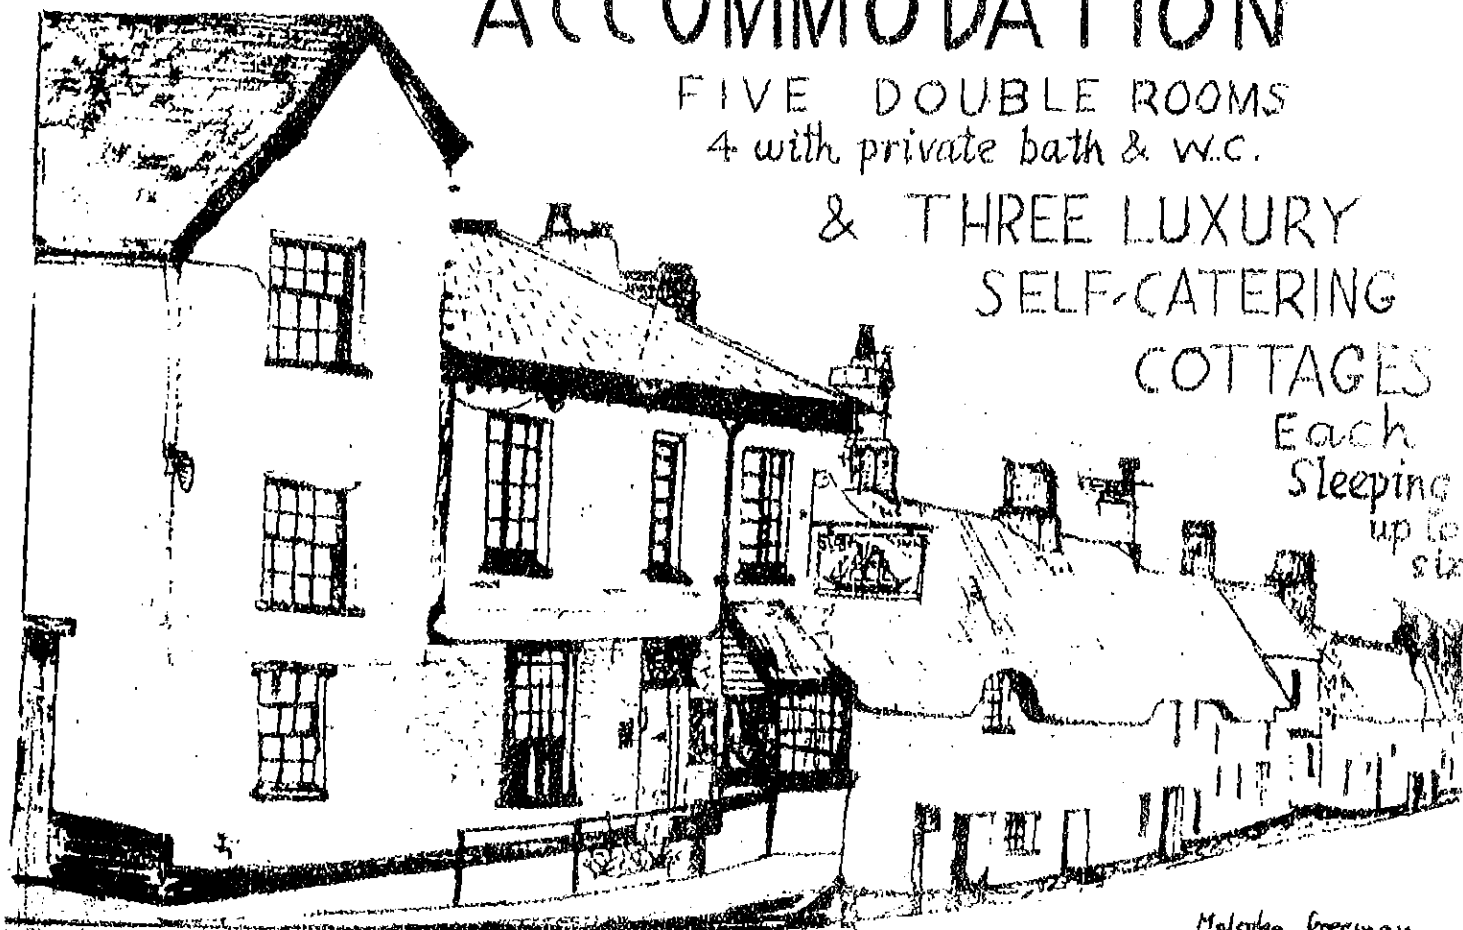 ACCOMMODATION
FIVE DOUBLE ROOMS
4 with private bath & W.C.
& THREE LUXURY
SELF-CATERING
COTTAGES
Each
Sleeping
up to
six